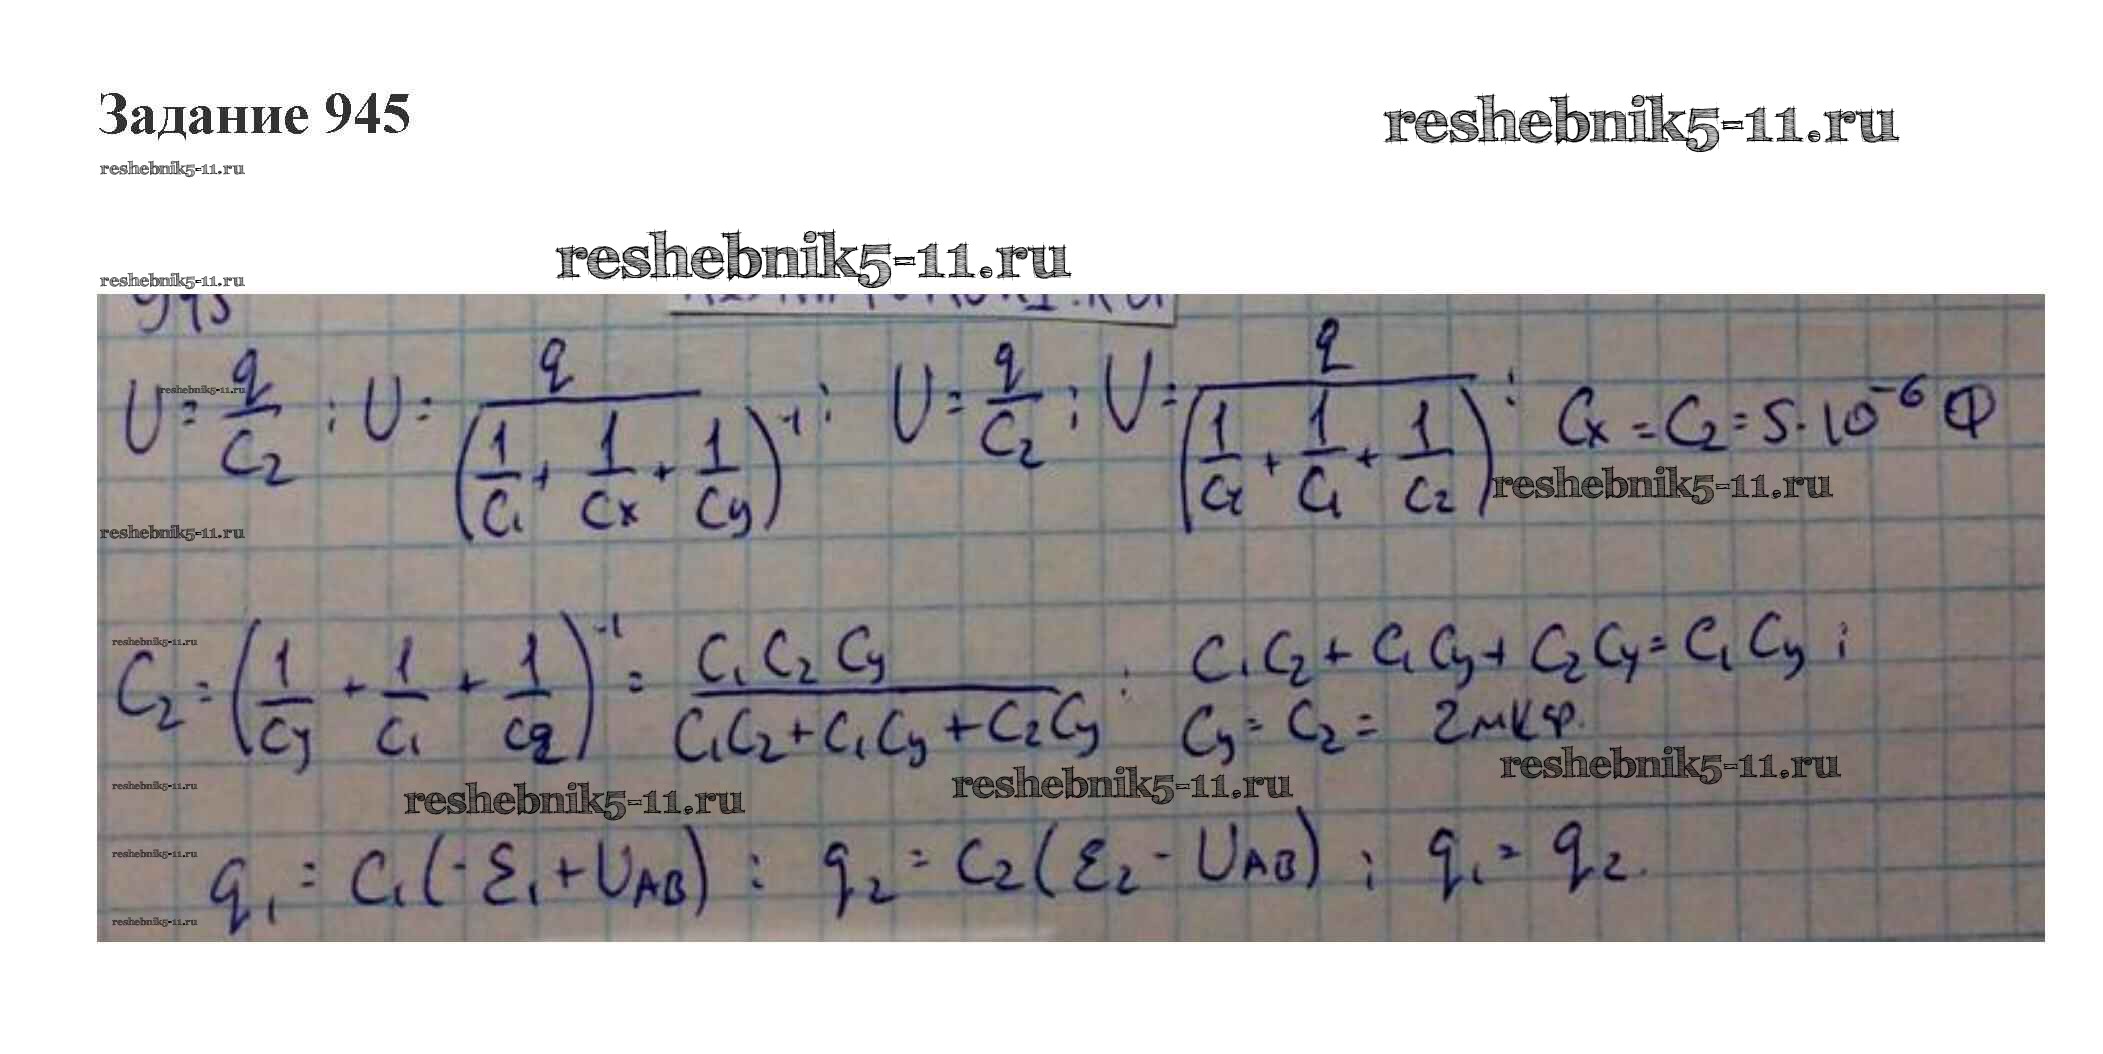 Задание 945
reshebnik5-11.ru
reshebnik5-11.ru
reshebnik5-11.ru
reshebnik5-11.ru
945
U = q/C₂ ; U = q/(1/C₁ + 1/Cx + 1/Cy)⁻¹ ; U = q/C₂ ; U = q/(1/C₂ + 1/C₁ + 1/C₂) ; Cx = C₂ = 5·10⁻⁶ Ф
reshebnik5-11.ru
reshebnik5-11.ru
reshebnik5-11.ru
reshebnik5-11.ru
C₂ = (1/Cy + 1/C₁ + 1/C₂)⁻¹ = C₁C₂Cy/(C₁C₂ + C₁Cy + C₂Cy) ; C₁C₂ + C₁Cy + C₂Cy = C₁Cy ;
Cy = C₂ = 2мкф.
reshebnik5-11.ru
reshebnik5-11.ru
reshebnik5-11.ru
reshebnik5-11.ru
reshebnik5-11.ru
q₁ = C₁(-Ɛ₁ + U_AB) ; q₂ = C₂(Ɛ₂ - U_AB) ; q₁ = q₂.
reshebnik5-11.ru